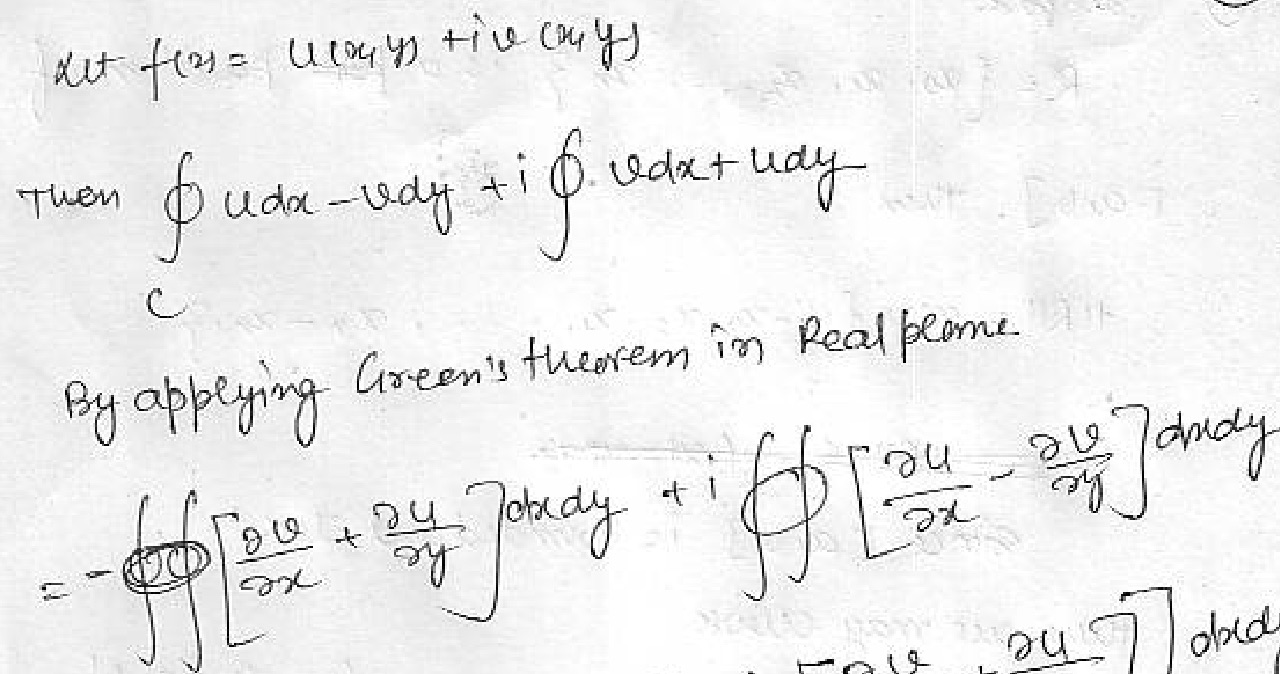 Let f(z) = u(x, y) + iv(x, y)
Then ∮ udx - vdy + i ∮. vdx + udy
C
By applying Green's theorem in Real plane
= - ∯ [∂v/∂x + ∂u/∂y] dxdy + i ∯ [∂u/∂x - ∂v/∂y] dxdy
[∂v + ∂u ] dxdy